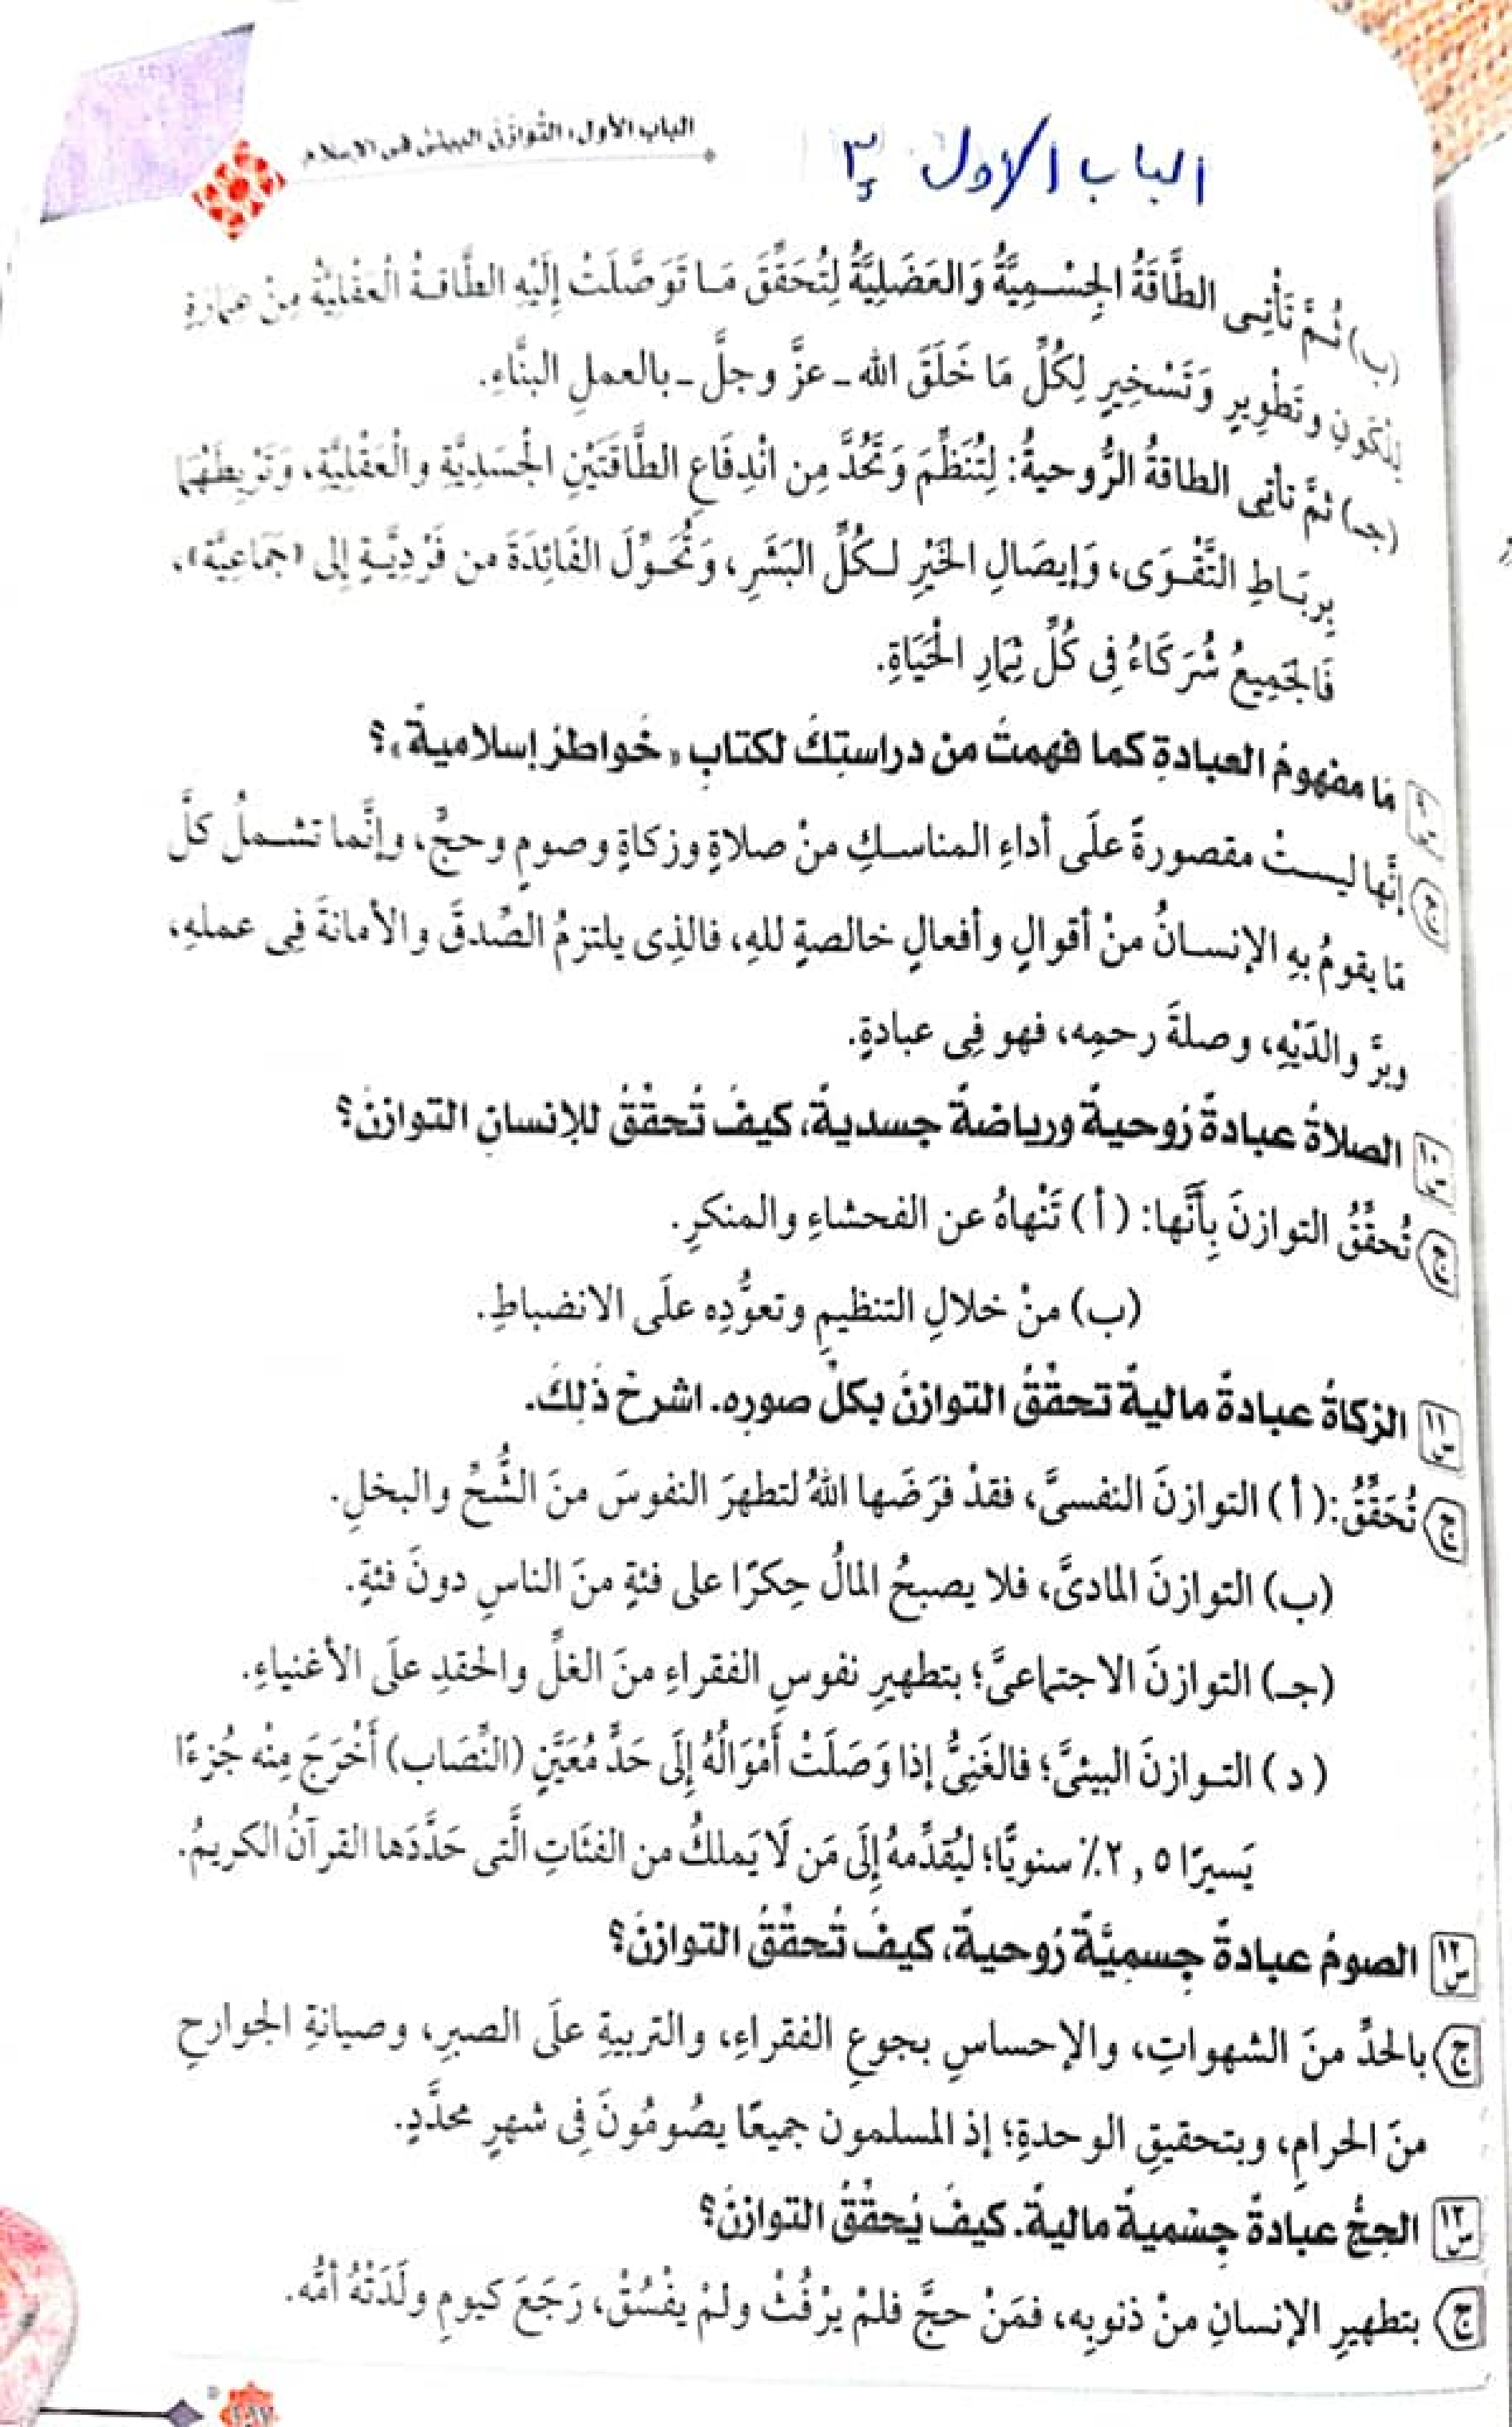 الباب الأول: التوازن البيئى فى الإسلام
الباب الاول
(ب) ثُمَّ تَأْتِى الطَّاقَةُ الجِسْمِيَّةُ وَالعَضَلِيَّةُ لِتُحَقِّقَ مَا تَوَصَّلَتْ إِلَيْهِ الطَّاقَةُ الْعَقْلِيَّةُ مِنْ عِمَارَةٍ
لِلْكَونِ وتَطْوِيرٍ وَتَسْخِيرٍ لِكُلِّ مَا خَلَقَ الله ـ عزَّ وجلَّ ـ بالعملِ البنَّاءِ.
(جـ) ثمَّ تأتِى الطاقةُ الرُّوحيةُ: لِتُنَظِّمَ وَتَحُدَّ مِن انْدِفَاعِ الطَّاقَتَيْنِ الْجَسَدِيَّةِ والْعَقْلِيَّةِ، وَتَرْبِطَهُمَا
بِرِبَاطِ التَّقْوَى، وَإيصَالِ الخَيْرِ لكُلِّ البَشَرِ، وَتُحَوِّلَ الفَائِدَةَ من فَرْدِيَّةٍ إلى «جَمَاعِيَّة»،
فَالجَمِيعُ شُرَكَاءُ فِى كُلِّ ثِمَارِ الْحَيَاةِ.
مَا مفهومُ العبادةِ كما فهمتَ من دراستِكَ لكتابِ «خواطرُ إسلاميةٌ»؟
إنَّها ليستْ مقصورةً علَى أداءِ المناسكِ منْ صلاةٍ وزكاةٍ وصومٍ وحجٍّ، وإنَّما تشملُ كلَّ
مَا يقومُ بِهِ الإنسانُ منْ أقوالٍ وأفعالٍ خالصةٍ للهِ، فالذِى يلتزمُ الصِّدقَ والأمانةَ فِى عملهِ،
وبرَّ والدَيْهِ، وصلةَ رحمِه، فهو فِى عبادةٍ.
١٠س الصلاةُ عبادةٌ رُوحيةٌ ورياضةٌ جسديةٌ، كيفَ تُحقِّقُ للإنسانِ التوازنَ؟
ج تُحقِّقُ التوازنَ بِأَنَّها: (أ) تَنْهاهُ عن الفحشاءِ والمنكرِ.
(ب) منْ خلالِ التنظيمِ وتعوُّدِه علَى الانضباطِ.
١١س الزكاةُ عبادةٌ ماليةٌ تحقِّقُ التوازنَ بكلِّ صورِه. اشرحْ ذلِكَ.
ج تُحَقِّقُ: (أ) التوازنَ النفسىَّ، فقدْ فرَضَها اللهُ لتطهرَ النفوسَ منَ الشُّحِّ والبخلِ.
(ب) التوازنَ المادىَّ، فلا يصبحُ المالُ حِكرًا على فئةٍ منَ الناسِ دونَ فئةٍ.
(جـ) التوازنَ الاجتماعىَّ؛ بتطهيرِ نفوسِ الفقراءِ منَ الغلِّ والحقدِ علَى الأغنياءِ.
(د) التوازنَ البيئىَّ؛ فالغَنِىُّ إذا وَصَلَتْ أَمْوَالُهُ إلَى حَدٍّ مُعَيَّنٍ (النِّصَاب) أَخْرَجَ مِنْه جُزءًا
يَسيرًا ٢,٥٪ سنويًّا؛ ليُقدِّمهُ إلَى مَن لَا يَملكُ من الفئَاتِ الَّتى حَدَّدَها القرآنُ الكريمُ.
١٢س الصومُ عبادةٌ جِسميَّةٌ رُوحيةٌ، كيفَ تُحقِّقُ التوازنَ؟
ج بالحدِّ منَ الشهواتِ، والإحساسِ بجوعِ الفقراءِ، والتربيةِ علَى الصبرِ، وصيانةِ الجوارحِ
منَ الحرامِ، وبتحقيقِ الوحدةِ؛ إذ المسلمون جميعًا يصُومُونَ فِى شهرٍ محدَّدٍ.
١٣س الحجُّ عبادةٌ جِسْميةٌ ماليةٌ. كيفَ يُحقِّقُ التوازنَ؟
ج بتطهيرِ الإنسانِ منْ ذنوبِه، فمَنْ حجَّ فلمْ يرْفُثْ ولمْ يفْسُقْ، رَجَعَ كيومِ ولَدَتْهُ أمُّه.